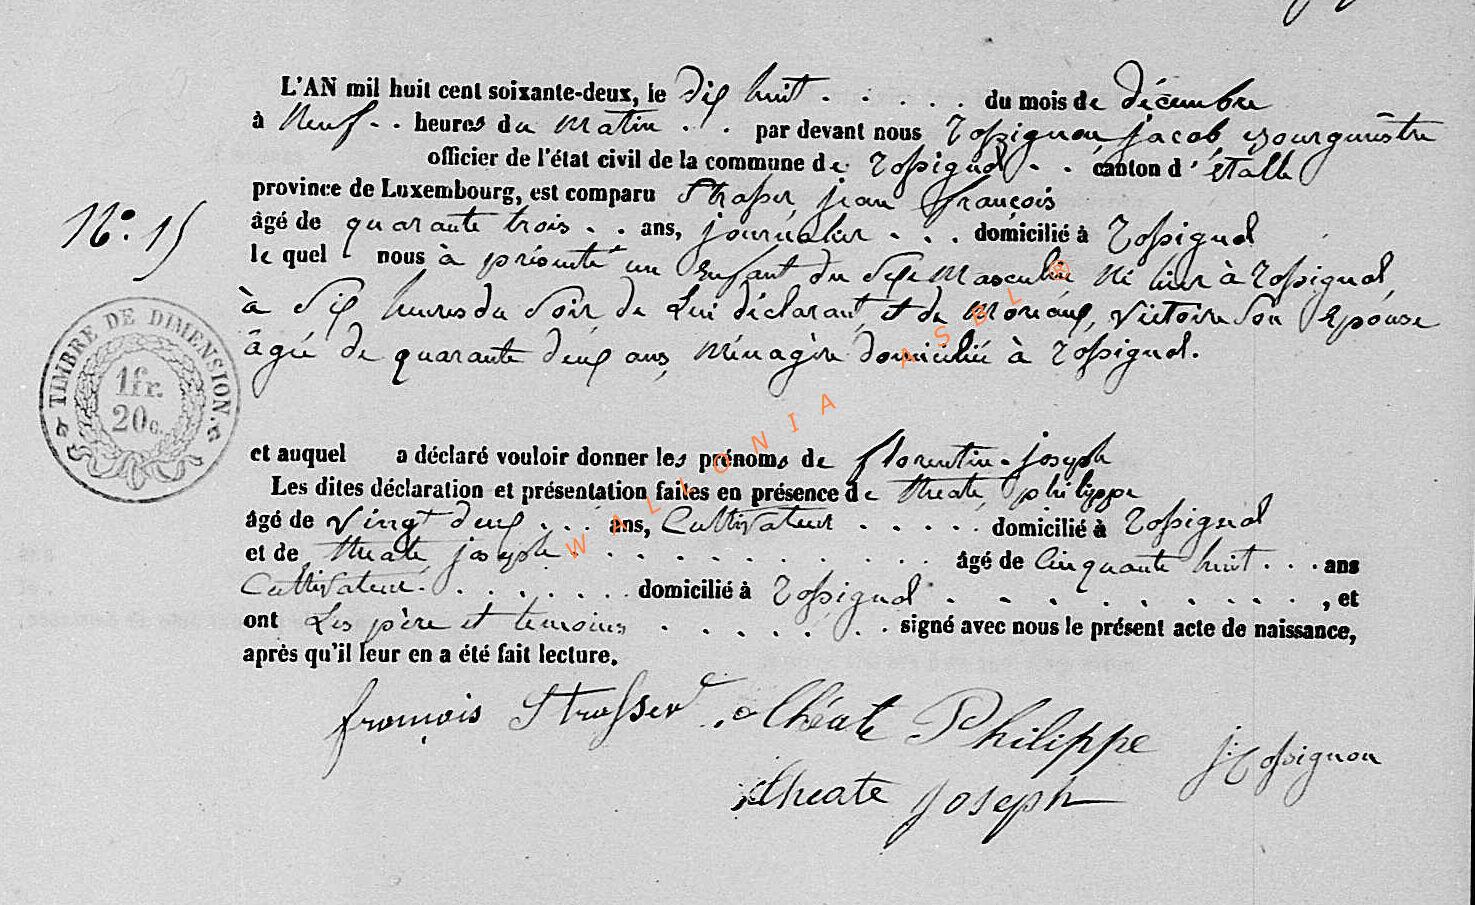 L'AN mil huit cent soixante-deux, le dix huit . . . . . du mois de décembre
à Neuf . . heures du matin . . . par devant nous Rossignon, jacob, Bourgmestre
officier de l'état civil de la commune de Rossignol . . canton d'étalle
province de Luxembourg, est comparu Strasser, jean françois
N.º 15
âgé de quarante trois . . ans, journalier . . . domicilié à Rossignol
lequel nous à présenté un Enfant du Sexe Masculin Né hier à Rossignol,
à dix heures du Soir de Lui déclarant, et de Moriaux, Victoire Son Epouse
âgée de quarante deux ans, Ménagère domiciliée à Rossignol.
TIMBRE DE DIMENSION.
1fr.
20c.
et auquel a déclaré vouloir donner les prénoms de florentin-joseph
Les dites déclaration et présentation faites en présence de théate, philippe
âgé de vingt deux . . . ans, Cultivateur . . . . . domicilié à Rossignol
et de théate, joseph . . . . . . . . . . âgé de Cinquante huit . . . ans
Cultivateur . . . . . . . domicilié à Rossignol . . . . . . . . . , et
ont Les père et témoins . . . . . . . signé avec nous le présent acte de naissance,
après qu'il leur en a été fait lecture.
françois Strasser théate Philippe j: Rossignon
théate joseph
WALLONIA ASBL ®